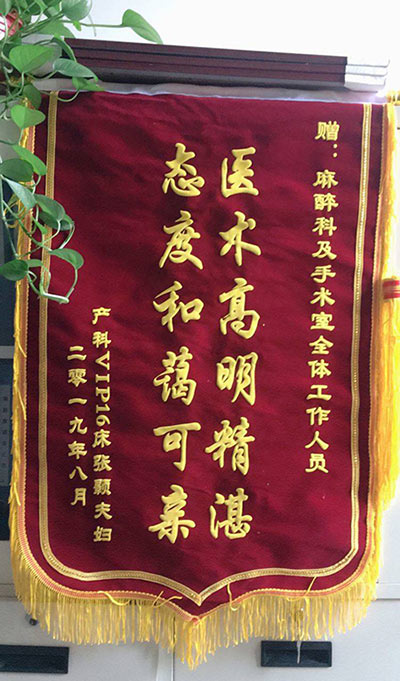 赠:麻醉科及手术室全体工作人员
医术高明精湛
态度和蔼可亲
产科VIP16床张颖夫妇
二零一九年八月